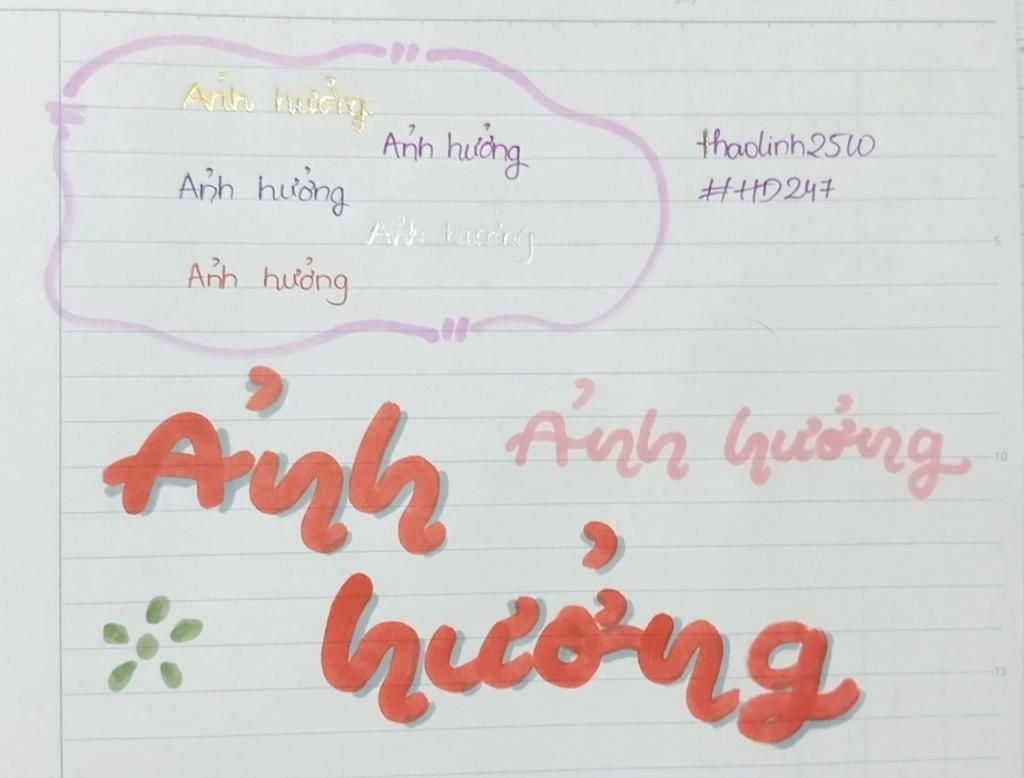 Ảnh hưởng
Ảnh hưởng
thaolinh2510
##HD247
Ảnh hưởng
Ảnh hưởng
Ảnh hưởng
Ảnh hưởng
Ảnh
hưởng
5
10
15